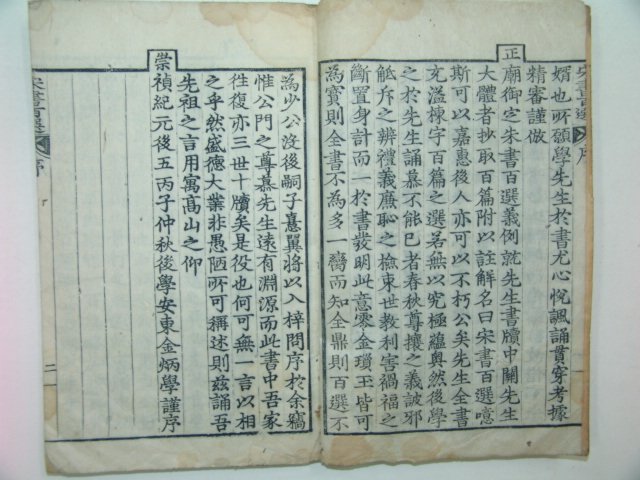 婿也所願學先生於書尤心悅諷誦貫穿考據
精審謹倣
正廟御定朱書百選義例就先生書牘中關先生
大體者抄取百篇附以註解名曰宋書百選噫
斯可以嘉惠後人亦可以不朽公矣先生全書
充溢棟宇百篇之選若無以究極蘊奧然後學
之於先生誦慕不能已者春秋尊攘之義詖邪
觝斥之辨禮義廉恥之檢東世敎利害禍福之
斷置身計而一於書發明此意零金瑣玉皆可
為寶則全書不為多一臠而知全鼎則百選不
為少公沒後嗣子憙翼將以入梓問序於余竊
惟公門之尊慕先生遠有淵源而此書中吾家
往復亦三世十牘矣是役也何可無一言以相
之乎然盛德大業非愚陋所可稱述則茲誦吾
先祖之言用寓高山之仰
崇禎紀元後五丙子仲秋後學安東金炳學謹序
宋書百選 序
二
宋書百選 序